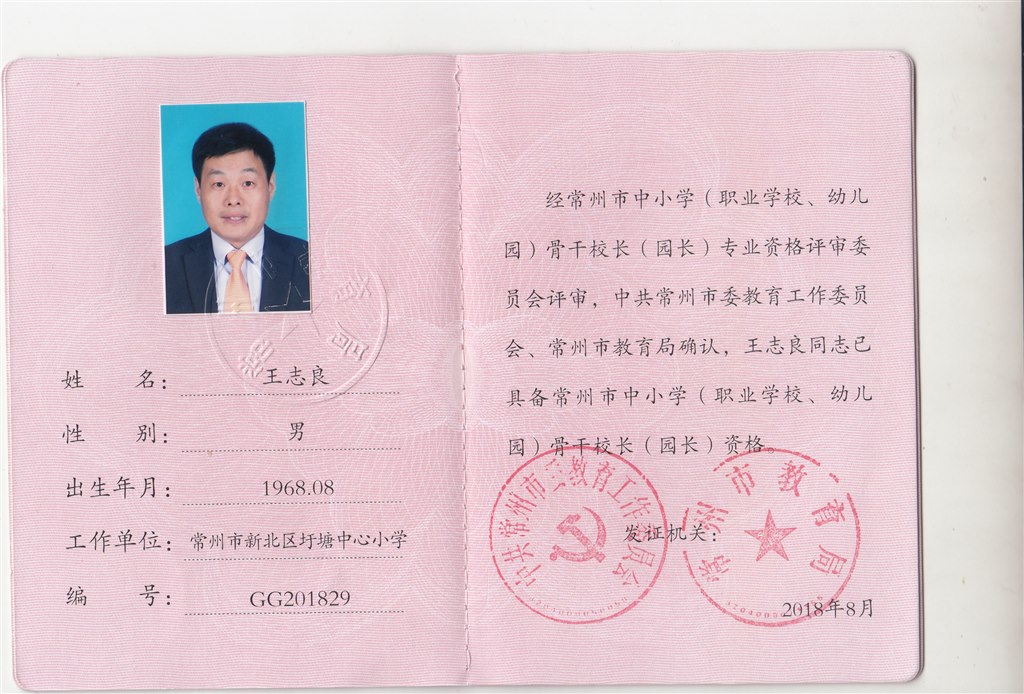 姓名：王志良
性别：男
出生年月：1968.08
工作单位：常州市新北区圩塘中心小学
编号：GG201829
经常州市中小学（职业学校、幼儿
园）骨干校长（园长）专业资格评审委
员会评审，中共常州市委教育工作委员
会、常州市教育局确认，王志良同志已
具备常州市中小学（职业学校、幼儿
园）骨干校长（园长）资格。
中共常州市委教育工作委员会
常州市教育局
发证机关：
2018年8月